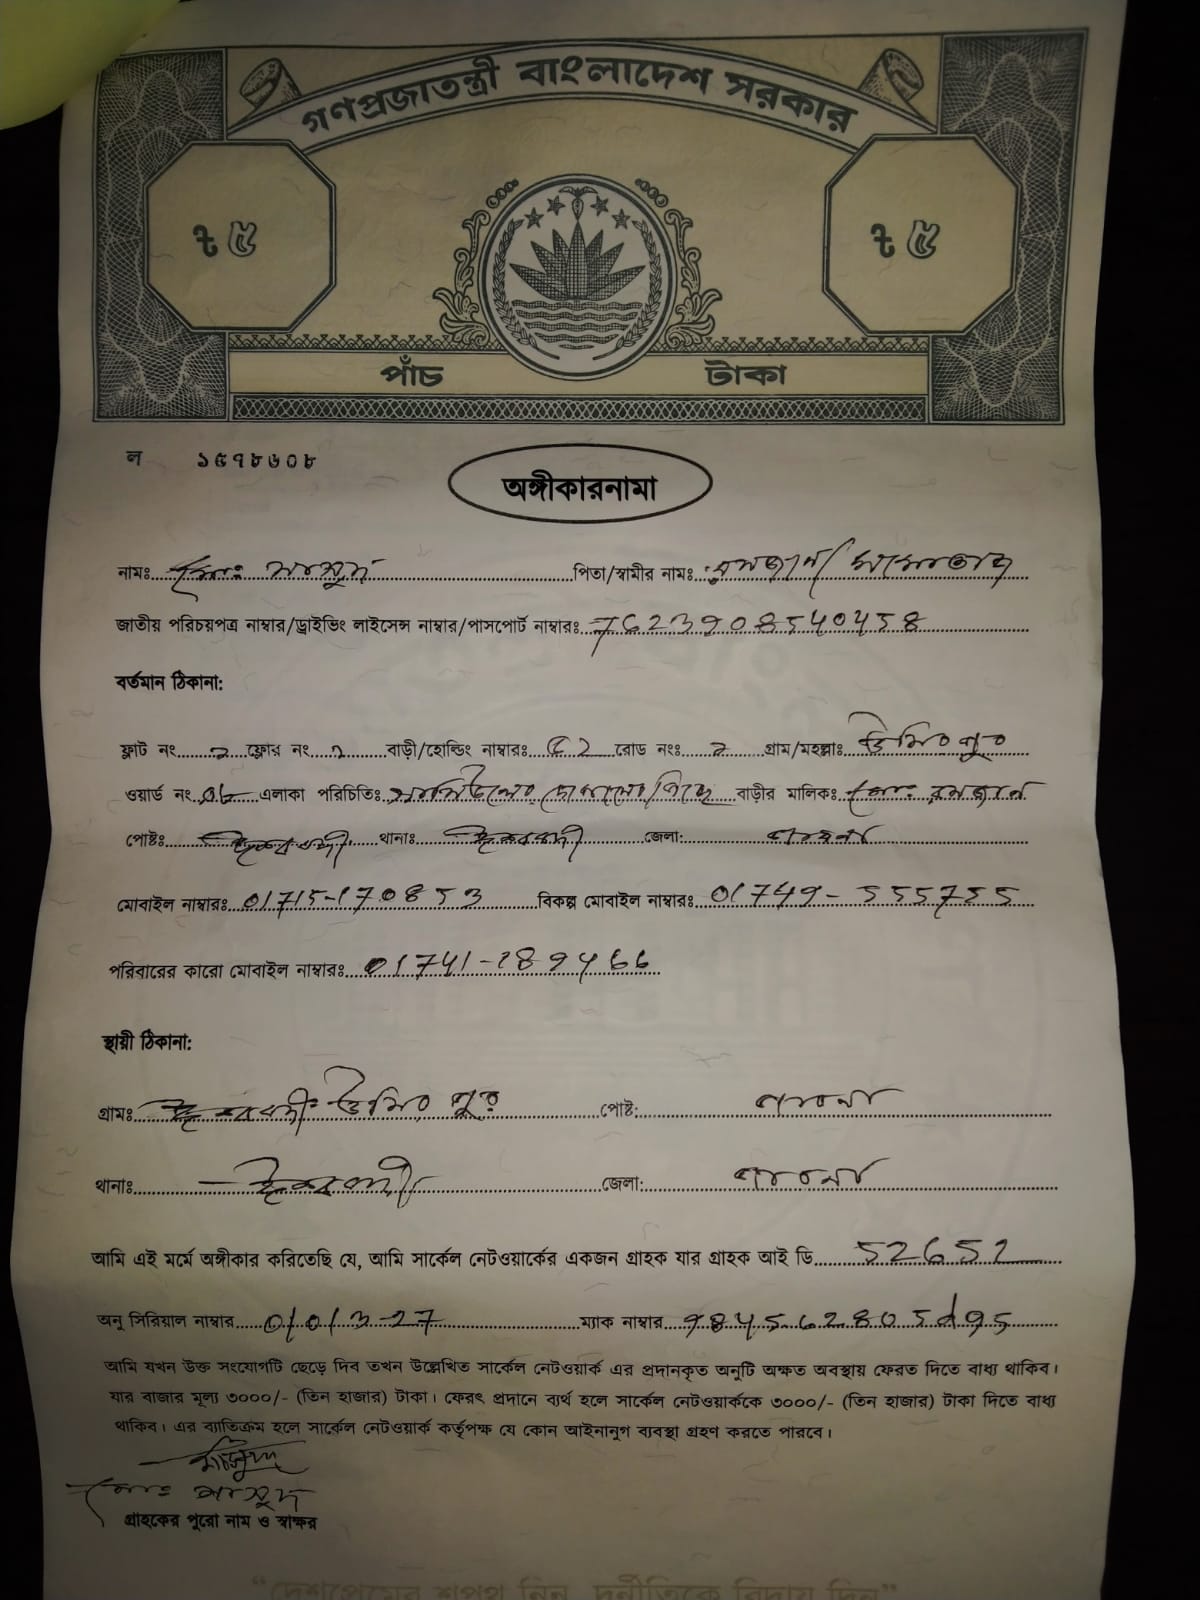 গণপ্রজাতন্ত্রী বাংলাদেশ সরকার
৳ ৫ ৳ ৫
পাঁচ টাকা
ল ১৫৭৮৬০৮
অঙ্গীকারনামা
নামঃ মোঃ মাসুদ পিতা/স্বামীর নামঃ রমজান/
জাতীয় পরিচয়পত্র নাম্বার/ড্রাইভিং লাইসেন্স নাম্বার/পাসপোর্ট নাম্বারঃ 7623908540458
বর্তমান ঠিকানা:
ফ্লাট নং ফ্লোর নং বাড়ী/হোল্ডিং নাম্বারঃ রোড নংঃ গ্রাম/মহল্লাঃ
ওয়ার্ড নং এলাকা পরিচিতিঃ বাড়ীর মালিকঃ মোঃ রমজান
পোষ্টঃ ঈশ্বরদী থানাঃ ঈশ্বরদী জেলা: পাবনা
মোবাইল নাম্বারঃ 01715-170853 বিকল্প মোবাইল নাম্বারঃ 01749-555755
পরিবারের কারো মোবাইল নাম্বারঃ 01741-289466
স্থায়ী ঠিকানা:
গ্রামঃ ঈশ্বরদী পোষ্ট: পাবনা
থানাঃ ঈশ্বরদী জেলা: পাবনা
আমি এই মর্মে অঙ্গীকার করিতেছি যে, আমি সার্কেল নেটওয়ার্কের একজন গ্রাহক যার গ্রাহক আই ডি 52652
অনু সিরিয়াল নাম্বার ম্যাক নাম্বার
আমি যখন উক্ত সংযোগটি ছেড়ে দিব তখন উল্লেখিত সার্কেল নেটওয়ার্ক এর প্রদানকৃত অনুটি অক্ষত অবস্থায় ফেরত দিতে বাধ্য থাকিব।
যার বাজার মূল্য ৩০০০/- (তিন হাজার) টাকা। ফেরৎ প্রদানে ব্যর্থ হলে সার্কেল নেটওয়ার্ককে ৩০০০/- (তিন হাজার) টাকা দিতে বাধ্য
থাকিব। এর ব্যাতিক্রম হলে সার্কেল নেটওয়ার্ক কর্তৃপক্ষ যে কোন আইনানুগ ব্যবস্থা গ্রহণ করতে পারবে।
মাসুদ
মোঃ মাসুদ
গ্রাহকের পুরো নাম ও স্বাক্ষর
"দেশপ্রেমের শপথ নিন, দুর্নীতিকে বিদায় দিন"